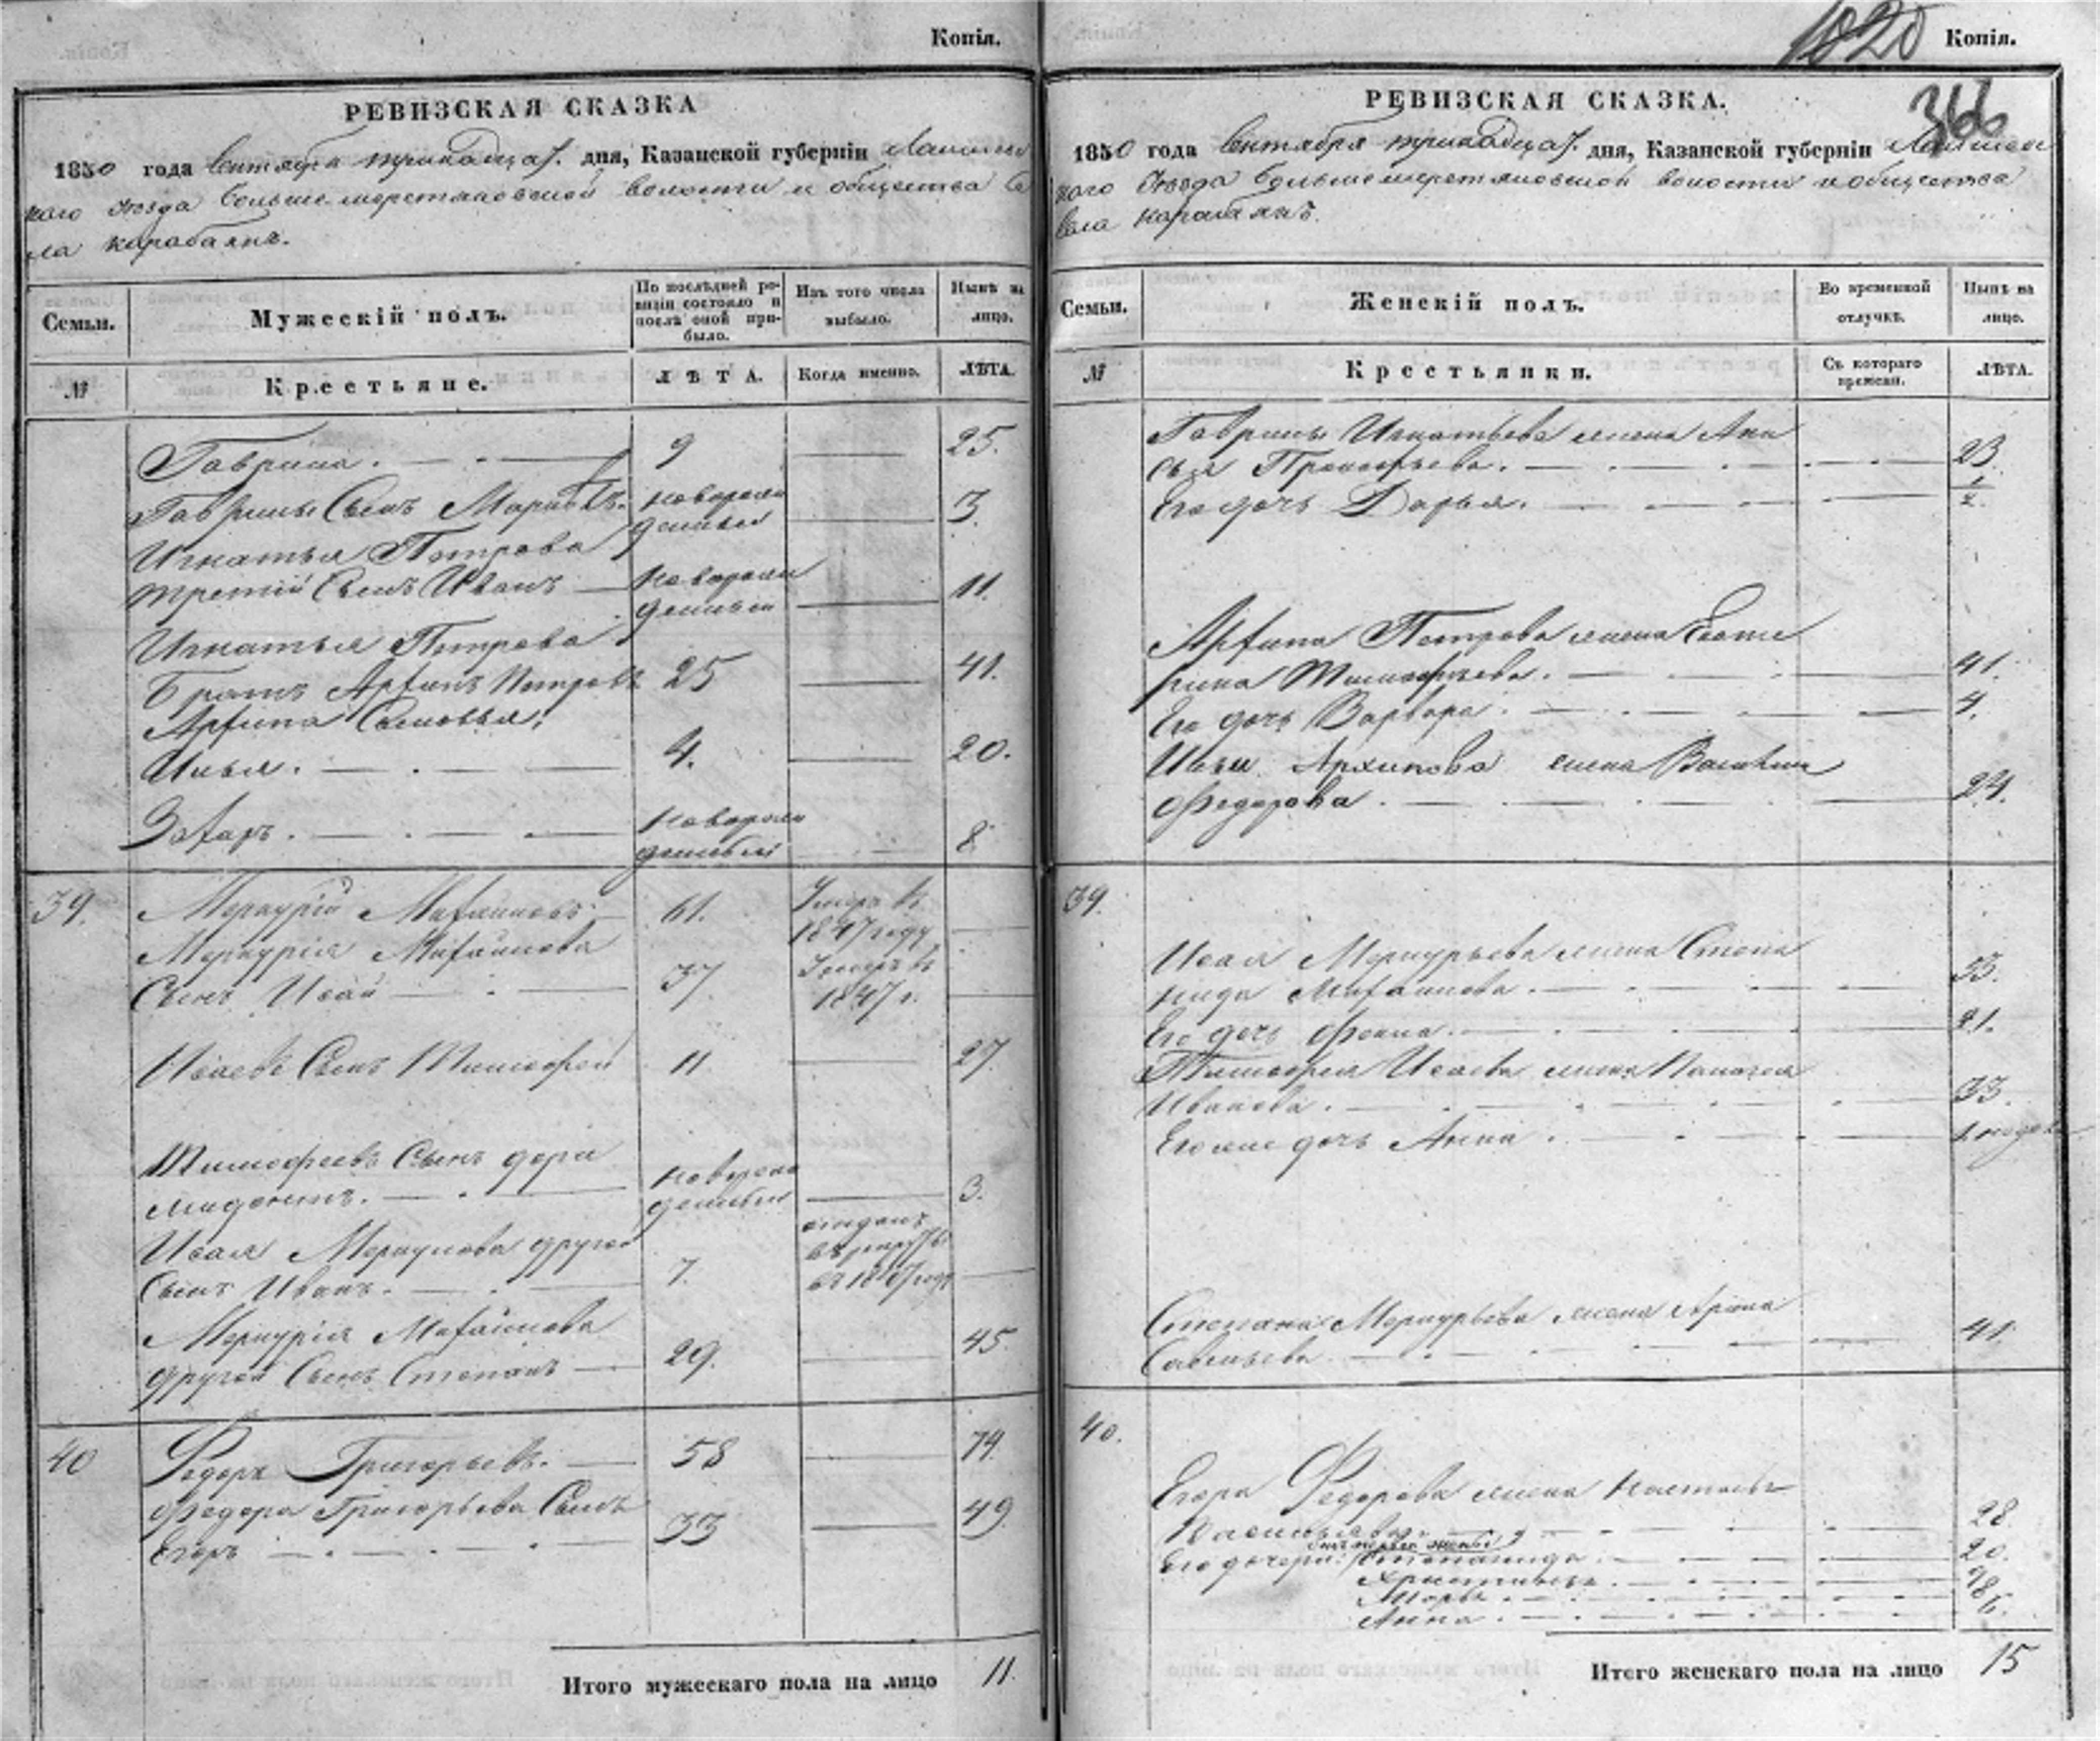 Копія.
РЕВИЗСКАЯ СКАЗКА
1850 года Сентября тринадцат. дня, Казанской губерніи Лаишевс
каго уезда Большемеретяковской волости и общества се
ла Карабаянъ.
Семьи.
Мужескій полъ.
По послѣдней ре-
визіи состояло и
послѣ оной при-
было.
Изъ того числа
выбыло.
Нынѣ на
лицо.
№
Крестьяне.
ЛѢТА.
Когда именно.
ЛѢТА.
Гаврила. 9 25.
Гаврилы Сынъ новорож 3.
денный
Игнатья Петрова
третій Сынъ Иванъ новорож 11.
денный
Игнатья Петрова
Братъ Архипъ Петровъ 25 41.
Архипа Сыновья:
Илья. 4. 20.
Захаръ. новорож
денный 8.
39. Меркурій Михайловъ 61. Умеръ въ
1847 году
Меркурія Михайлова
Сынъ Исай 37 Умеръ въ
1847 г.
Исаевъ Сынъ Тимофей 11 27.
Тимофеевъ Сынъ
новорож
денный 3.
Исая Меркулова другой отданъ
въ рекруты
Сынъ Иванъ. 7. въ 1847 году
Меркурія Михайлова
другой Сынъ Степанъ 29. 45.
40 Федоръ Григорьевъ. 58 74.
Федора Григорьева Сынъ
Егоръ 33 49.
Итого мужескаго пола на лицо 11.
1020
Копія.
366
РЕВИЗСКАЯ СКАЗКА.
1850 года Сентября тринадцат. дня, Казанской губерніи Лаишевс
каго Уезда Большемеретяковской волости и общества
села Карабаянъ.
Семьи.
Женскій полъ.
Во временной
отлучкѣ.
Нынѣ на
лицо.
№
Крестьянки.
Съ котораго
времени.
ЛѢТА.
Гаврилы Игнатьева жена
Прокофьева. 23.
Его дочь Дарья. 1/2.
Архипа Петрова жена Екате
рина Тимофеева. 41.
Его дочь Варвара. 4.
Ильи Архипова жена
Федорова. 24.
39.
Исая Меркурьева жена Степа
нида Михайлова. 53.
Его дочь 21.
Тимофея Исаева жена Пелагея
Иванова. 33.
Его же дочь Анна.
Степана Меркурьева жена Арина
Савельева 41.
40.
Егора Федорова жена Настасья
Васильева 28.
отъ первой жены
Его дочери: Степанида 20.
Христинья.
Марья
Анна. 6.
Итого женскаго пола на лицо 15